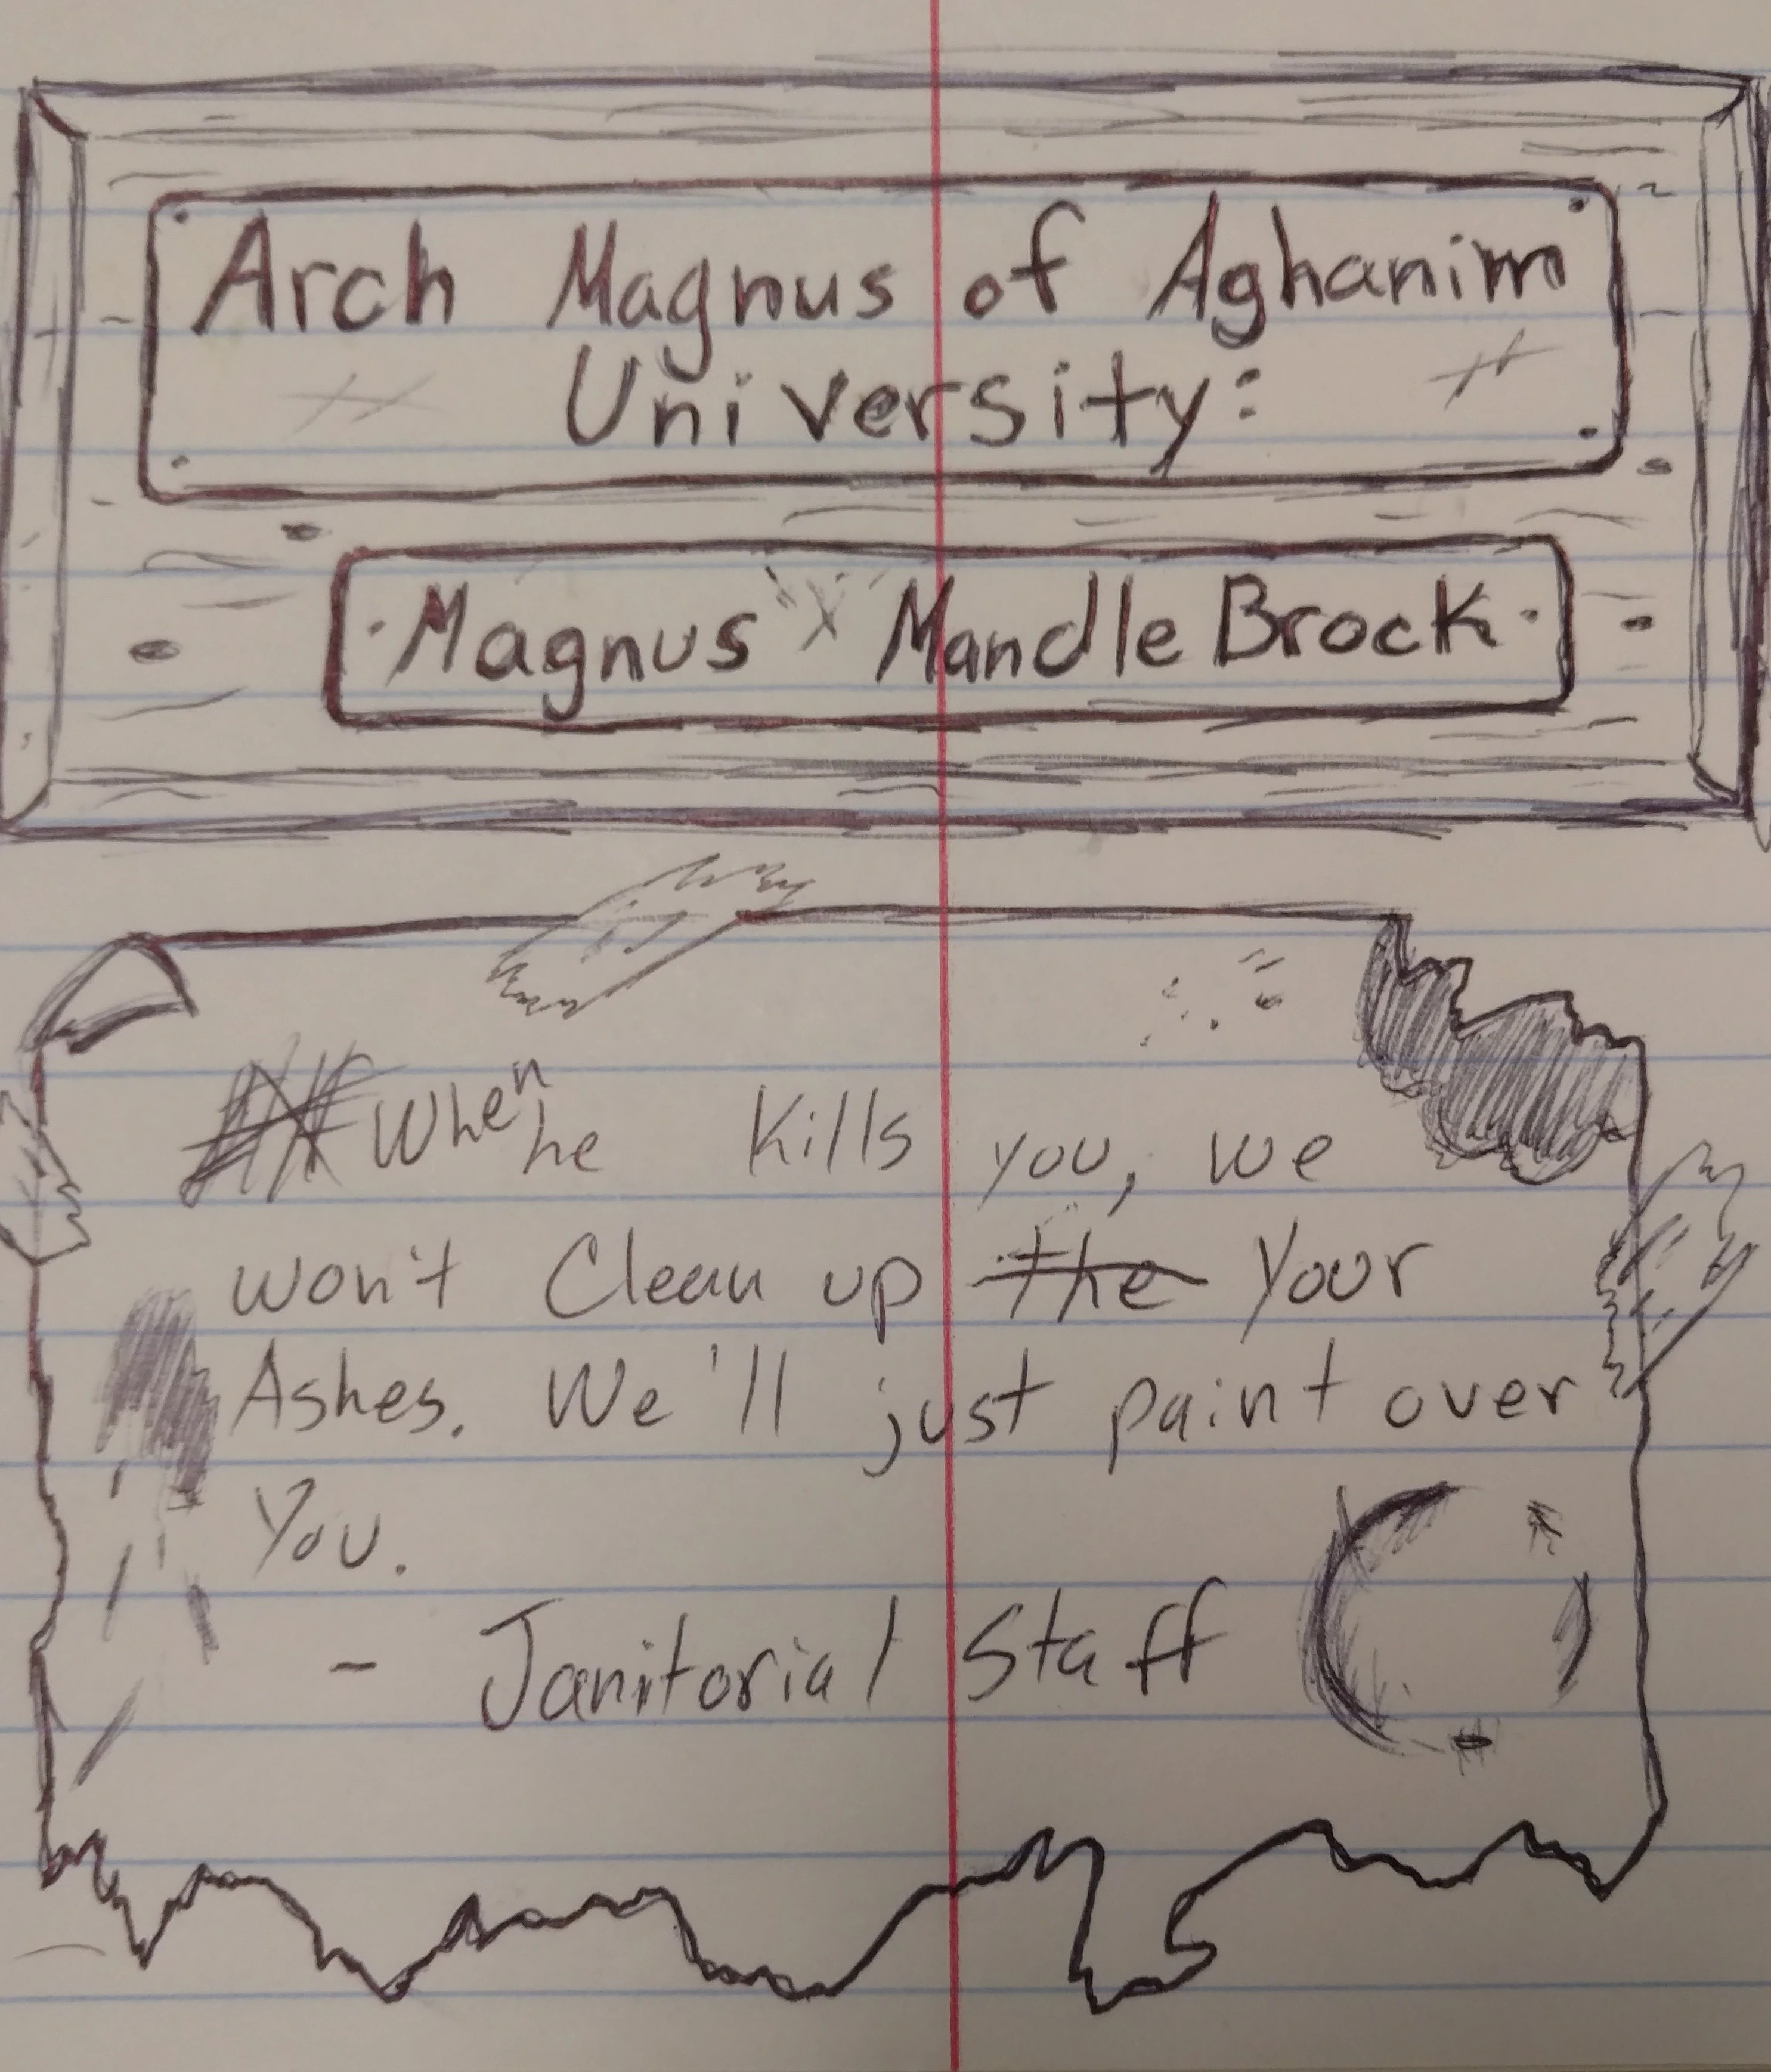 Arch Magnus of Aghanim
University:
Magnus Mandle Brock
When he kills you, we
won't Clean up the Your
Ashes. We'll just paint over
You.
- Janitorial Staff